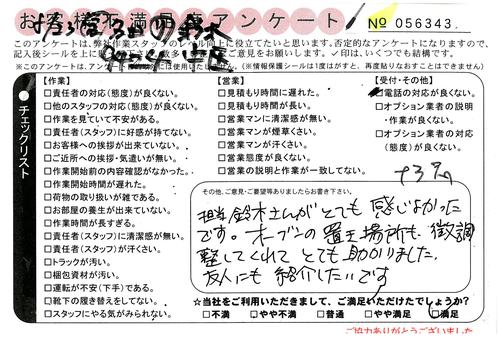 お客様不満足アンケート
№ 056343
このアンケートは、弊社作業スタッフのレベル向上に役立てたいと思います。否定的なアンケートになりますので、
記入後シールを
ご意見をお願いします。✓印は、いくつでも結構です。
(※情報保護シールは1度はがすと、再度貼りなおすことはできません)
チェックリスト
【作業】
□責任者の対応(態度)が良くない。
□他のスタッフの対応(態度)が良くない。
□作業を見ていて不安がある。
□責任者(スタッフ)に好感が持てない。
□お客様への挨拶が出来ていない。
□ご近所への挨拶・気遣いが無い。
□作業開始前の内容確認がなかった。
□作業開始時間が遅れた。
□荷物の取り扱いが雑である。
□お部屋の養生が出来ていない。
□作業時間が長すぎる。
□責任者(スタッフ)に清潔感が無い。
□責任者(スタッフ)が汗くさい。
□トラックが汚い。
□梱包資材が汚い。
□運転が不安(下手)である。
□靴下の履き替えをしてない。
□スタッフにやる気がみられない。
【営業】
□見積もり時間に遅れた。
□見積もり時間が長い。
□営業マンに清潔感が無い。
□営業マンが煙草くさい。
□営業マンが汗くさい。
□営業態度が良くない。
□営業の説明と作業が一致してない。
【受付・その他】
□電話の対応が良くない。
□オプション業者の説明
・作業が良くない。
□オプション業者の対応
(態度)が良くない。
その他、ご意見・ご要望等ありましたらお書き下さい。
担当鈴木さんがとても感じよかった
です。オーブンの置き場所も、微調
整してくれてとても助かりました。
友人にも紹介したいです
☆当社をご利用いただきまして、ご満足いただけたでしょうか?
□不満 □やや不満 □普通 □やや満足 □満足
ご協力ありがとうございました